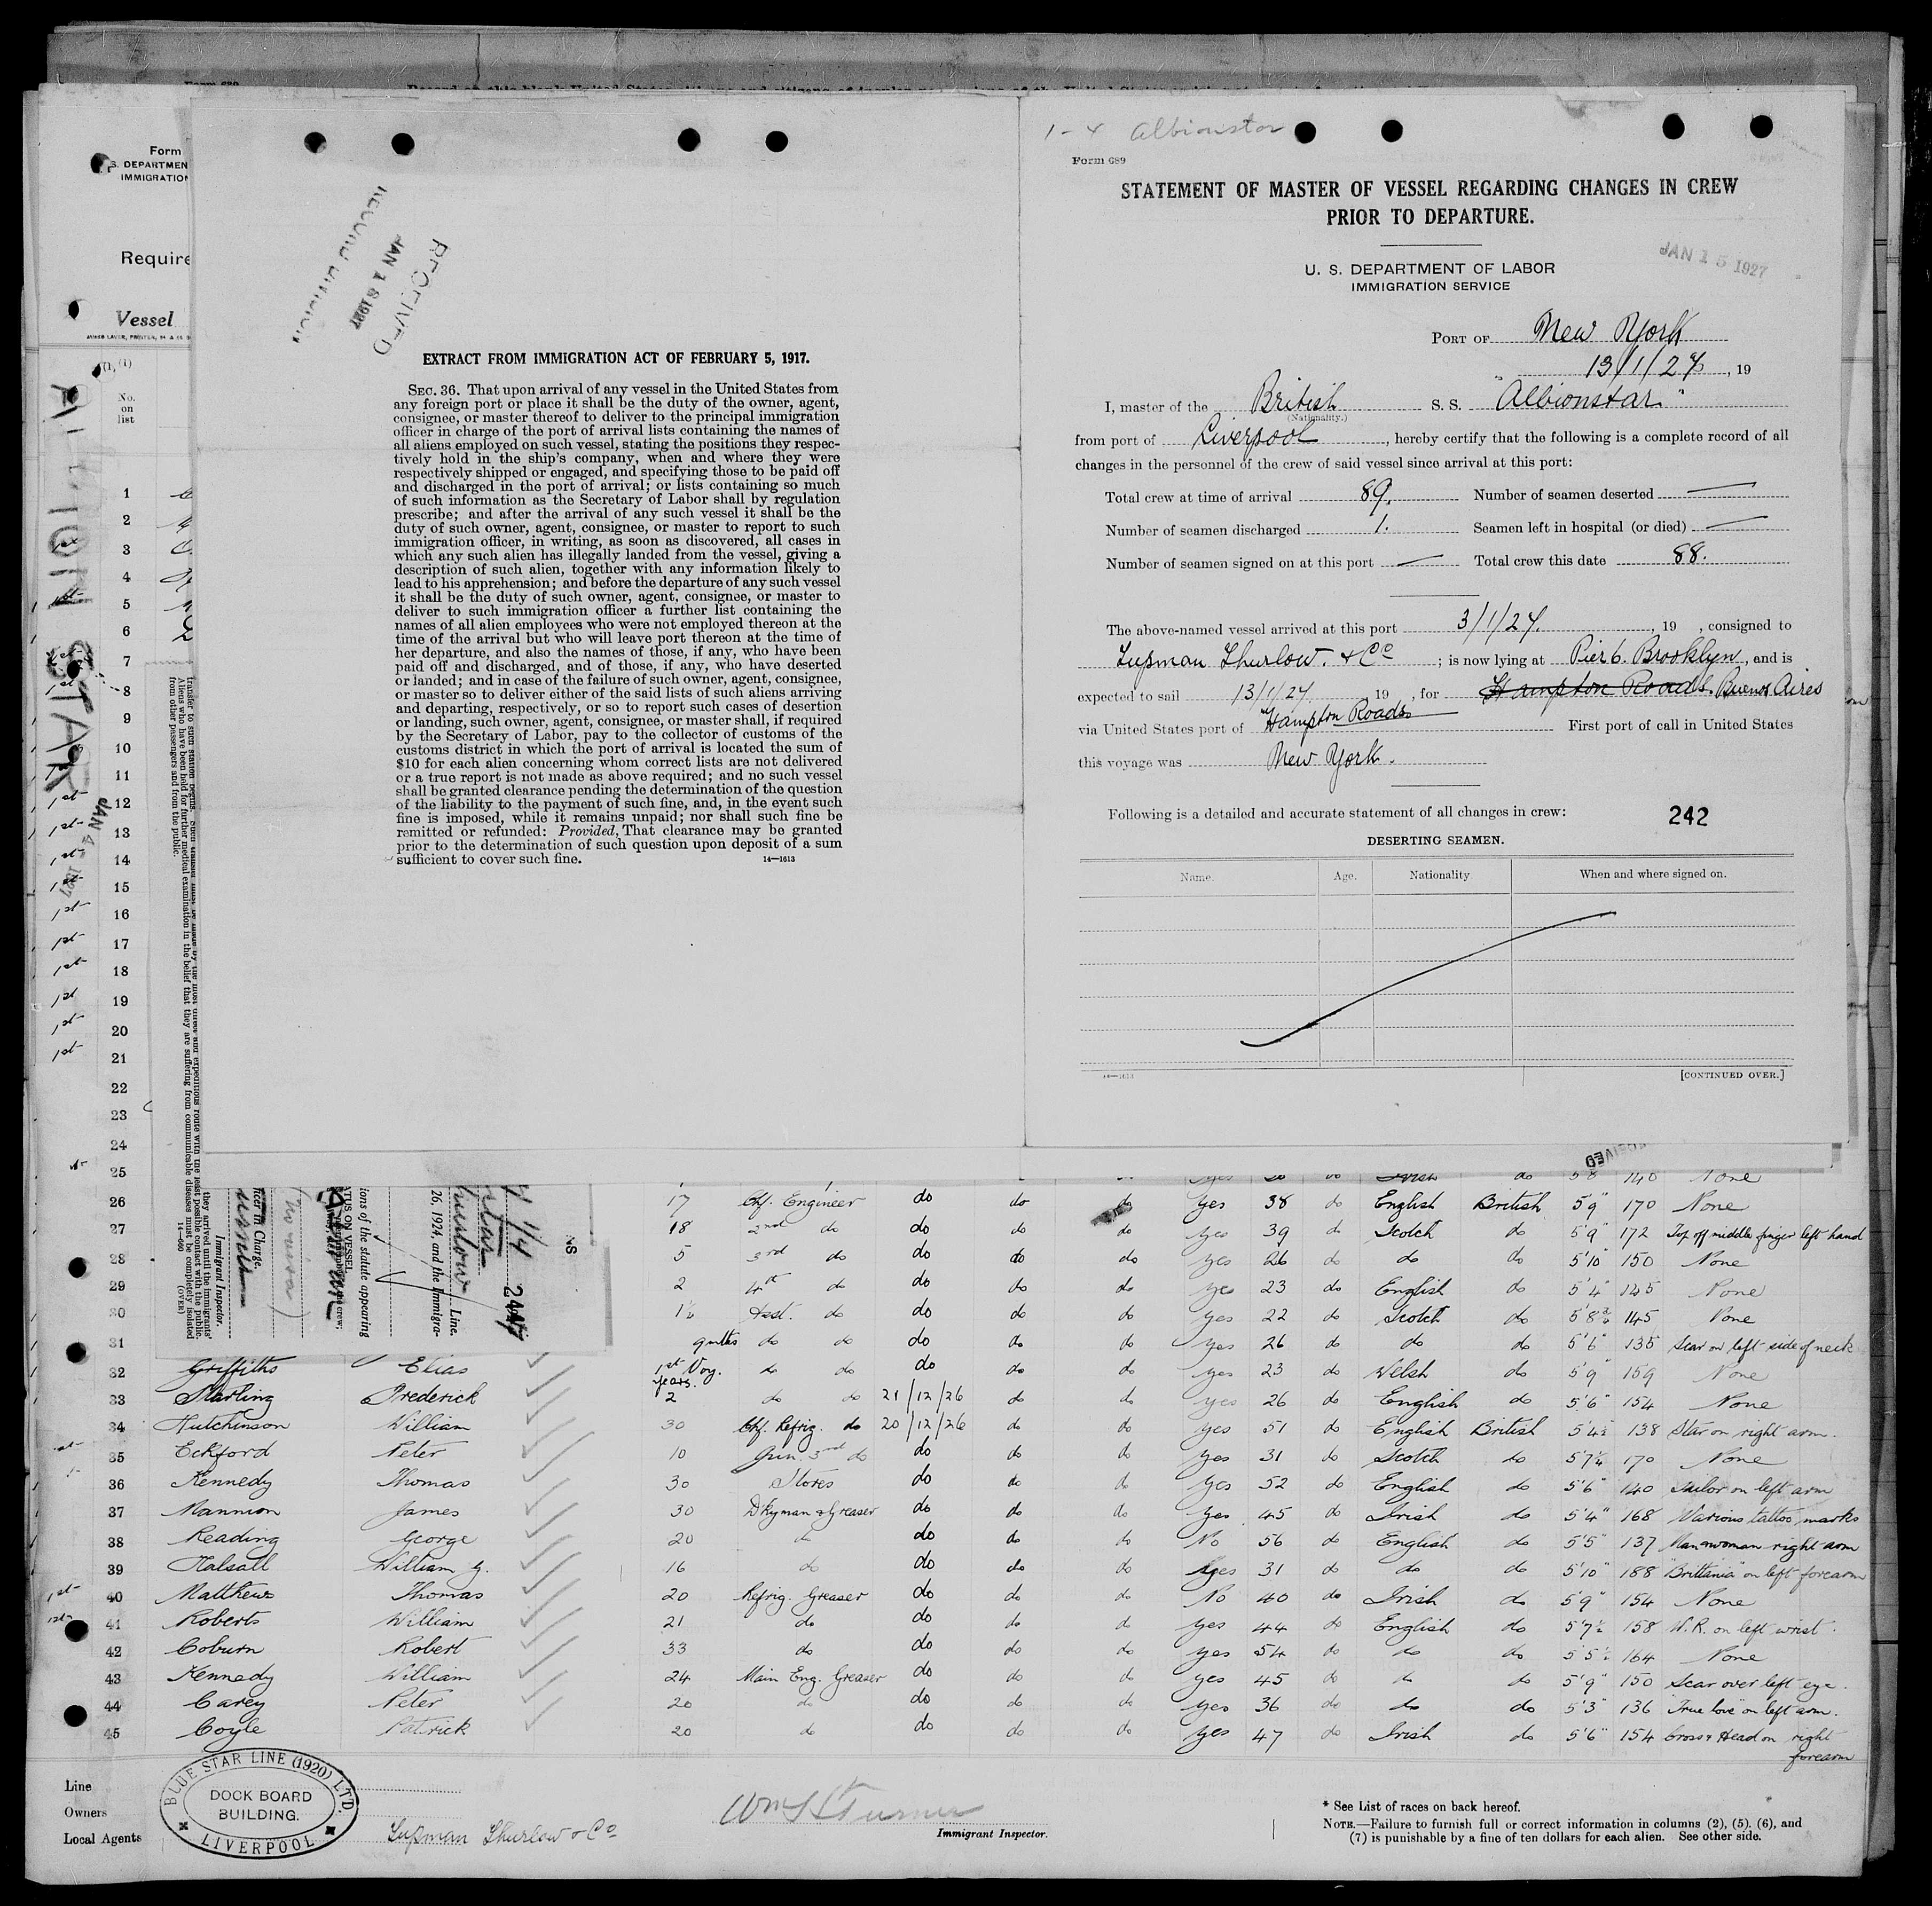 1-4 Albionstar
Form 689
STATEMENT OF MASTER OF VESSEL REGARDING CHANGES IN CREW
PRIOR TO DEPARTURE.
U. S. DEPARTMENT OF LABOR
IMMIGRATION SERVICE
JAN 15 1927
PORT OF New York
13/1/27, 19
I, master of the British S. S. "Albionstar"
(Nationality.)
from port of Liverpool, hereby certify that the following is a complete record of all
changes in the personnel of the crew of said vessel since arrival at this port:
Total crew at time of arrival 89. Number of seamen deserted —
Number of seamen discharged 1. Seamen left in hospital (or died) —
Number of seamen signed on at this port — Total crew this date 88.
The above-named vessel arrived at this port 3/1/27., 19 , consigned to
Tupman Thurlow. & Co ; is now lying at Pier 6. Brooklyn, and is
expected to sail 13/1/27, 19 , for Hampton Roads. Buenos Aires
via United States port of Hampton Roads First port of call in United States
this voyage was New York.
Following is a detailed and accurate statement of all changes in crew: 242
DESERTING SEAMEN.
Name. Age. Nationality When and where signed on.
14—1613 [CONTINUED OVER.]
RECEIVED
JAN 18 1927
RECORD DIVISION
EXTRACT FROM IMMIGRATION ACT OF FEBRUARY 5, 1917.
SEC. 36. That upon arrival of any vessel in the United States from
any foreign port or place it shall be the duty of the owner, agent,
consignee, or master thereof to deliver to the principal immigration
officer in charge of the port of arrival lists containing the names of
all aliens employed on such vessel, stating the positions they respec-
tively hold in the ship's company, when and where they were
respectively shipped or engaged, and specifying those to be paid off
and discharged in the port of arrival; or lists containing so much
of such information as the Secretary of Labor shall by regulation
prescribe; and after the arrival of any such vessel it shall be the
duty of such owner, agent, consignee, or master to report to such
immigration officer, in writing, as soon as discovered, all cases in
which any such alien has illegally landed from the vessel, giving a
description of such alien, together with any information likely to
lead to his apprehension; and before the departure of any such vessel
it shall be the duty of such owner, agent, consignee, or master to
deliver to such immigration officer a further list containing the
names of all alien employees who were not employed thereon at the
time of the arrival but who will leave port thereon at the time of
her departure, and also the names of those, if any, who have been
paid off and discharged, and of those, if any, who have deserted
or landed; and in case of the failure of such owner, agent, consignee,
or master so to deliver either of the said lists of such aliens arriving
and departing, respectively, or so to report such cases of desertion
or landing, such owner, agent, consignee, or master shall, if required
by the Secretary of Labor, pay to the collector of customs of the
customs district in which the port of arrival is located the sum of
$10 for each alien concerning whom correct lists are not delivered
or a true report is not made as above required; and no such vessel
shall be granted clearance pending the determination of the question
of the liability to the payment of such fine, and, in the event such
fine is imposed, while it remains unpaid; nor shall such fine be
remitted or refunded: Provided, That clearance may be granted
prior to the determination of such question upon deposit of a sum
sufficient to cover such fine. 14—1613
Form
S. DEPARTMEN
IMMIGRATION
Require
Vessel
No.
on
list
ALBION STAR
JAN 4 1927
1
2
3
4
5
6
7
8
9
10
11
12
13
14
15
16
17
18
19
20
21
22
23
24
25 do Irish do 5'8 140 None
26 17 Chf. Engineer do do do yes 38 do English British 5'9" 170 None
27 18 2nd do do do do yes 39 do Scotch do 5'9" 172 Top off middle finger left hand
28 5 3rd do do do do yes 26 do do do 5'10" 150 None
29 2 4th do do do do yes 23 do English do 5'4" 145 None
30 1½ Asst. do do do do yes 22 do Scotch do 5'8¾ 145 None
31 do do do do do yes 26 do do do 5'6" 135 Scar on left side of neck
32 Griffiths Elias 1st Voy. do do do do do yes 23 do Welsh do 5'9" 159 None
33 Starling Frederick years. 2 do do 21/12/26 do do yes 26 do English do 5'6" 154 None
34 Hutchinson William 30 Chf. Refrig. do 20/12/26 do do yes 51 do English British 5'4½ 138 Star on right arm.
35 Eckford Peter 10 Jun. 3rd do do do do yes 31 do Scotch do 5'7¼ 170 None
36 Kennedy Thomas 30 Stores do do do yes 52 do English do 5'6" 140 Sailor on left arm
37 Mannion James 30 D'kyman & Greaser do do do yes 45 do Irish do 5'4" 168 Various tattoo marks
38 Reading George 20 do do do do No 56 do English do 5'5" 137 Man & woman right arm
39 Halsall William G. 16 do do do do yes 31 do do do 5'10" 188 "Brittania" on left forearm
40 Matthews Thomas 20 Refrig. Greaser do do do No 40 do Irish do 5'9" 154 None
41 Roberts William 21 do do do do yes 44 do English do 5'7½ 158 W.R. on left wrist.
42 Coburn Robert 33 do do do do yes 54 do do do 5'5½ 164 None
43 Kennedy William 24 Main Eng. Greaser do do do yes 45 do do do 5'9" 150 Scar over left eye.
44 Carey Peter 20 do do do do yes 36 do do do 5'3" 136 True love on left arm.
45 Coyle Patrick 20 do do do do yes 47 do Irish do 5'6" 154 Cross & Head on right
forearm
Line
Owners
Local Agents Tupman Thurlow & Co
BLUE STAR LINE (1920) LTD.
DOCK BOARD
BUILDING.
LIVERPOOL
Immigrant Inspector.
* See List of races on back hereof.
NOTE.—Failure to furnish full or correct information in columns (2), (5), (6), and
(7) is punishable by a fine of ten dollars for each alien. See other side.